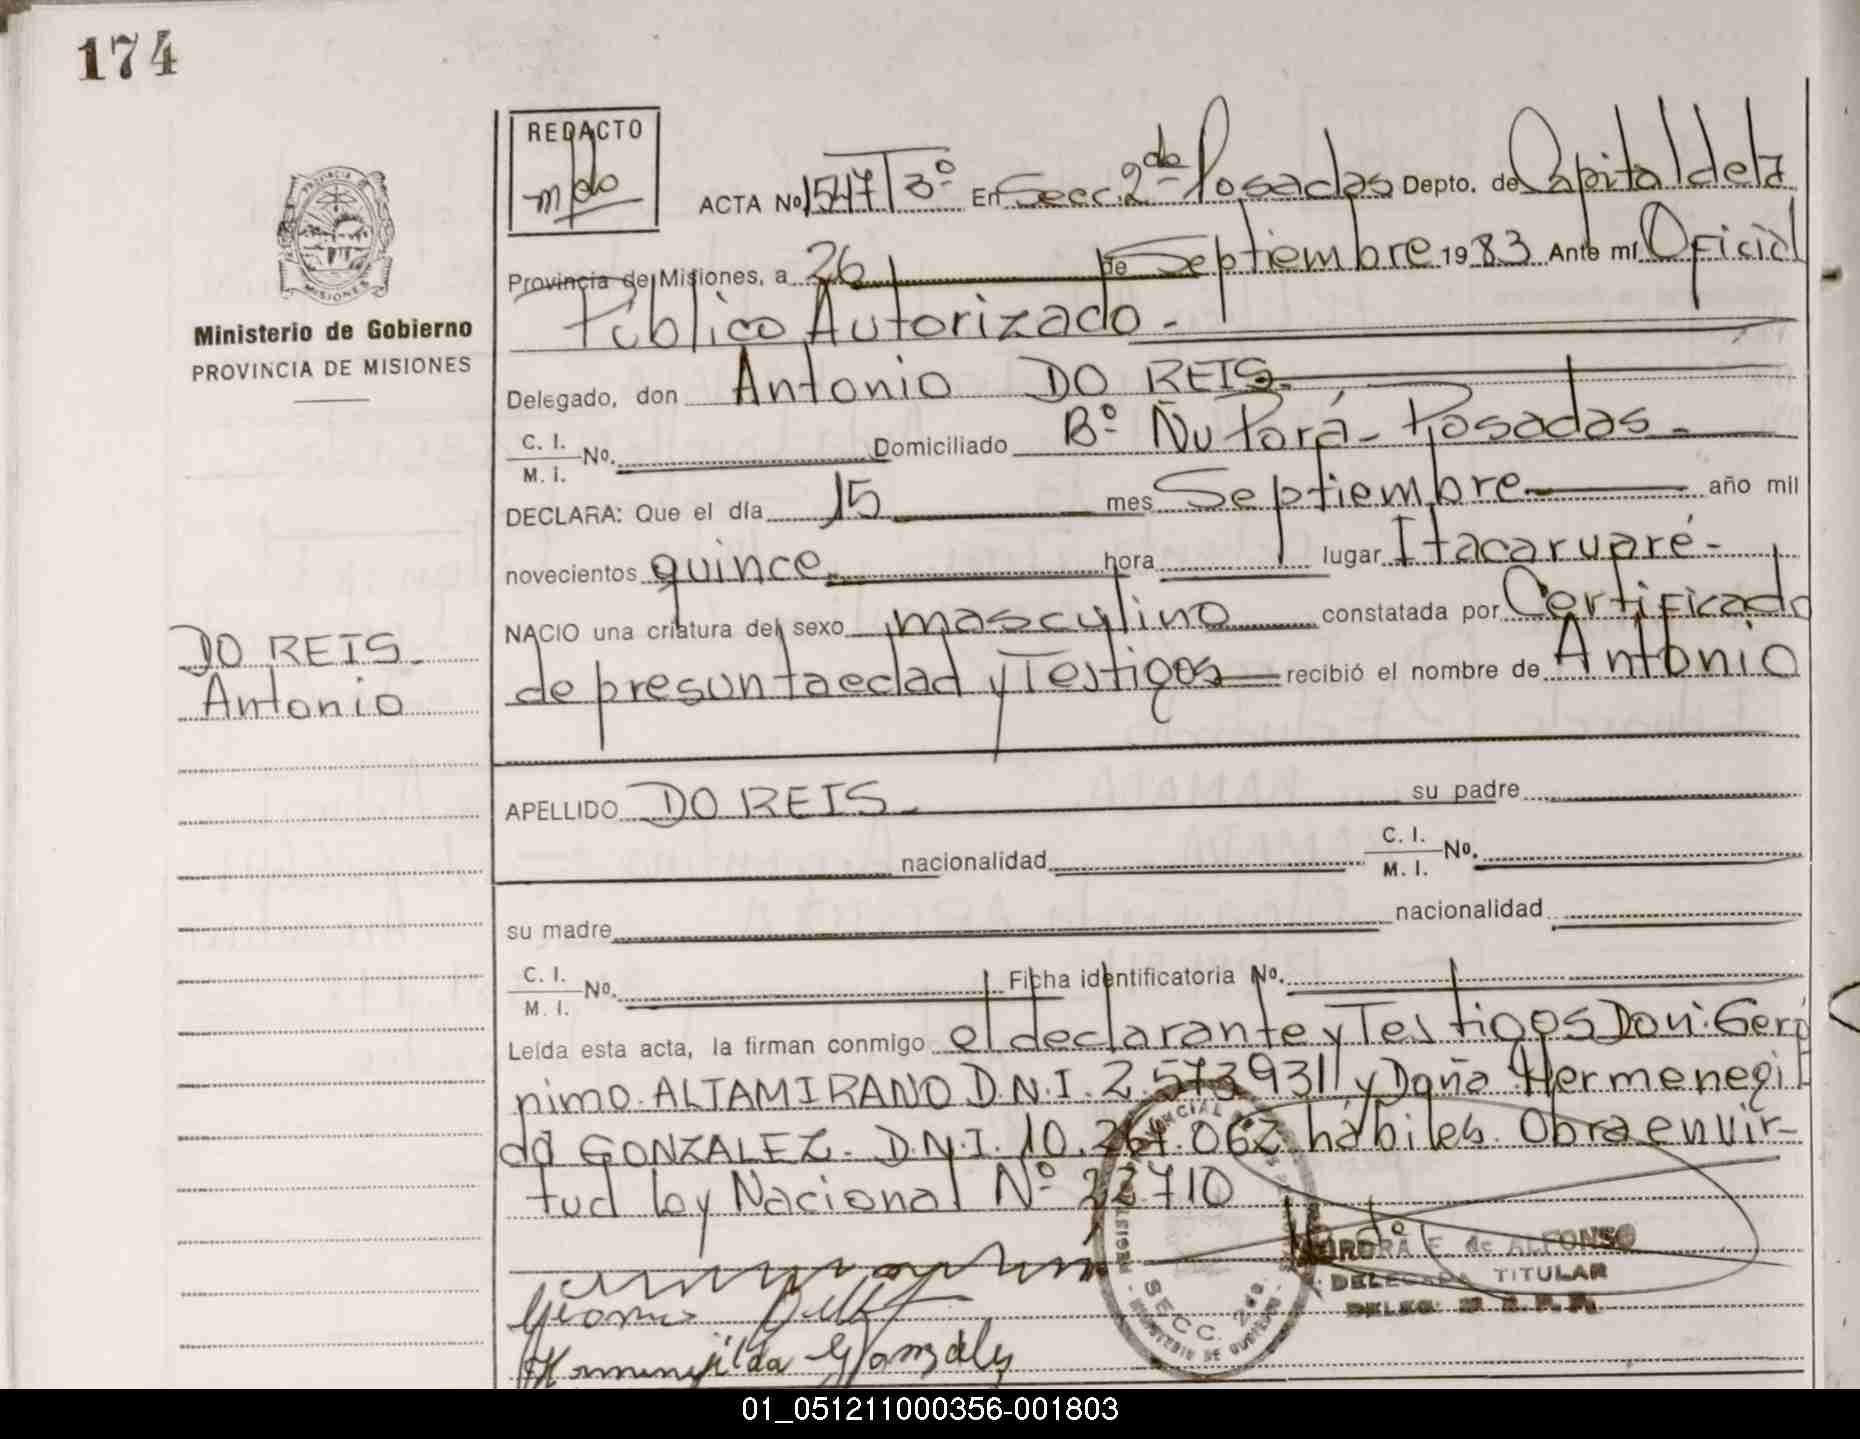 174
REDACTO
mpdo
ACTA Nº 1547 T 3º En Secc. 2da Posadas Depto. de Capital de la
Provincia de Misiones, a 26 de Septiembre 1983 Ante mí Oficial
Público Autorizado.-
PROVINCIA DE
MISIONES
Ministerio de Gobierno
PROVINCIA DE MISIONES
Delegado, don Antonio DO REIS.
C. I.
M. I. Nº. Domiciliado Bº Ñu Porá - Posadas.-
DECLARA: Que el día 15 mes Septiembre año mil
novecientos quince hora lugar Itacaruaré-
NACIO una criatura del sexo masculino constatada por Certificado
de presunta edad y Testigos recibió el nombre de Antonio
DO REIS.
Antonio
APELLIDO DO REIS.- su padre
nacionalidad C. I.
M. I. Nº.
su madre nacionalidad
C. I.
M. I. Nº. Ficha identificatoria Nº.
Leída esta acta, la firman conmigo el declarante y Testigos Don: Geró
nimo ALTAMIRANO D.N.I. 2.573931 y Doña Hermenegil
da GONZALEZ. D.N.I. 10.267.062 hábiles. Obra en vir-
tud ley Nacional Nº 22710
E. de ALFONSO
DELEGADA TITULAR
SECC. 2da.
Hermenejilda Gonzales
01_051211000356-001803